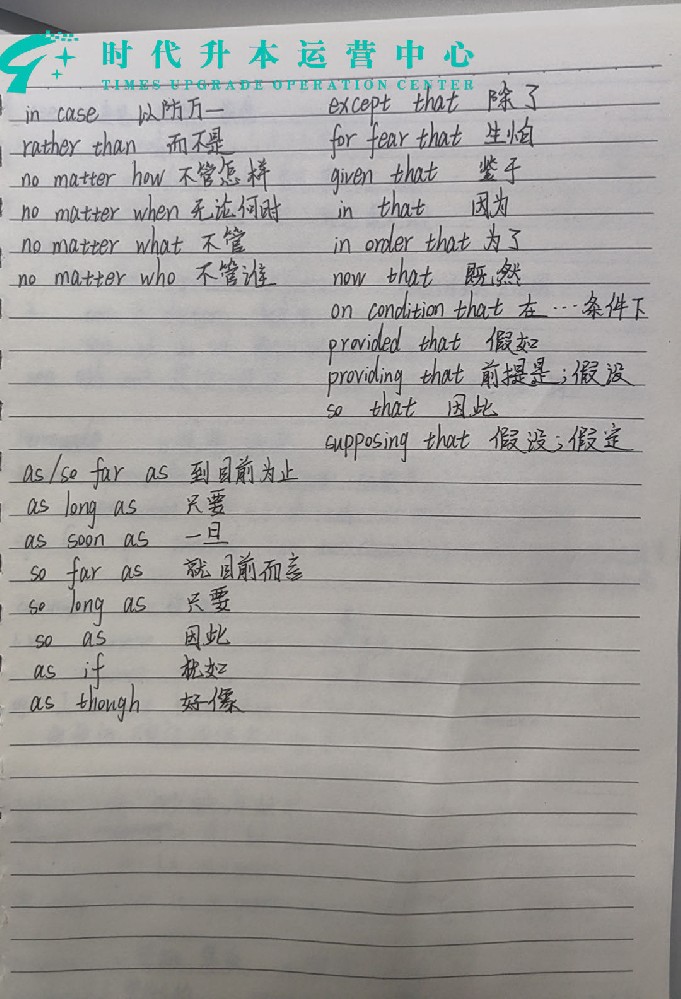 时代升本运营中心
TIMES UPGRADE OPERATION CENTER
in case 以防万一
rather than 而不是
no matter how 不管怎样
no matter when 无论何时
no matter what 不管
no matter who 不管谁
except that 除了
for fear that 生怕
given that 鉴于
in that 因为
in order that 为了
now that 既然
on condition that 在…条件下
provided that 假如
providing that 前提是;假设
so that 因此
supposing that 假设;假定
as/so far as 到目前为止
as long as 只要
as soon as 一旦
so far as 就目前而言
so long as 只要
so as 因此
as if 如
as though 好像